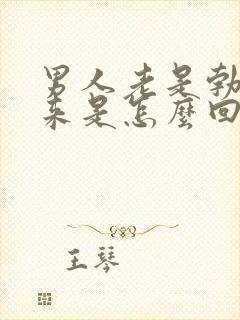 男人老是勃
来是怎麼回
王琴